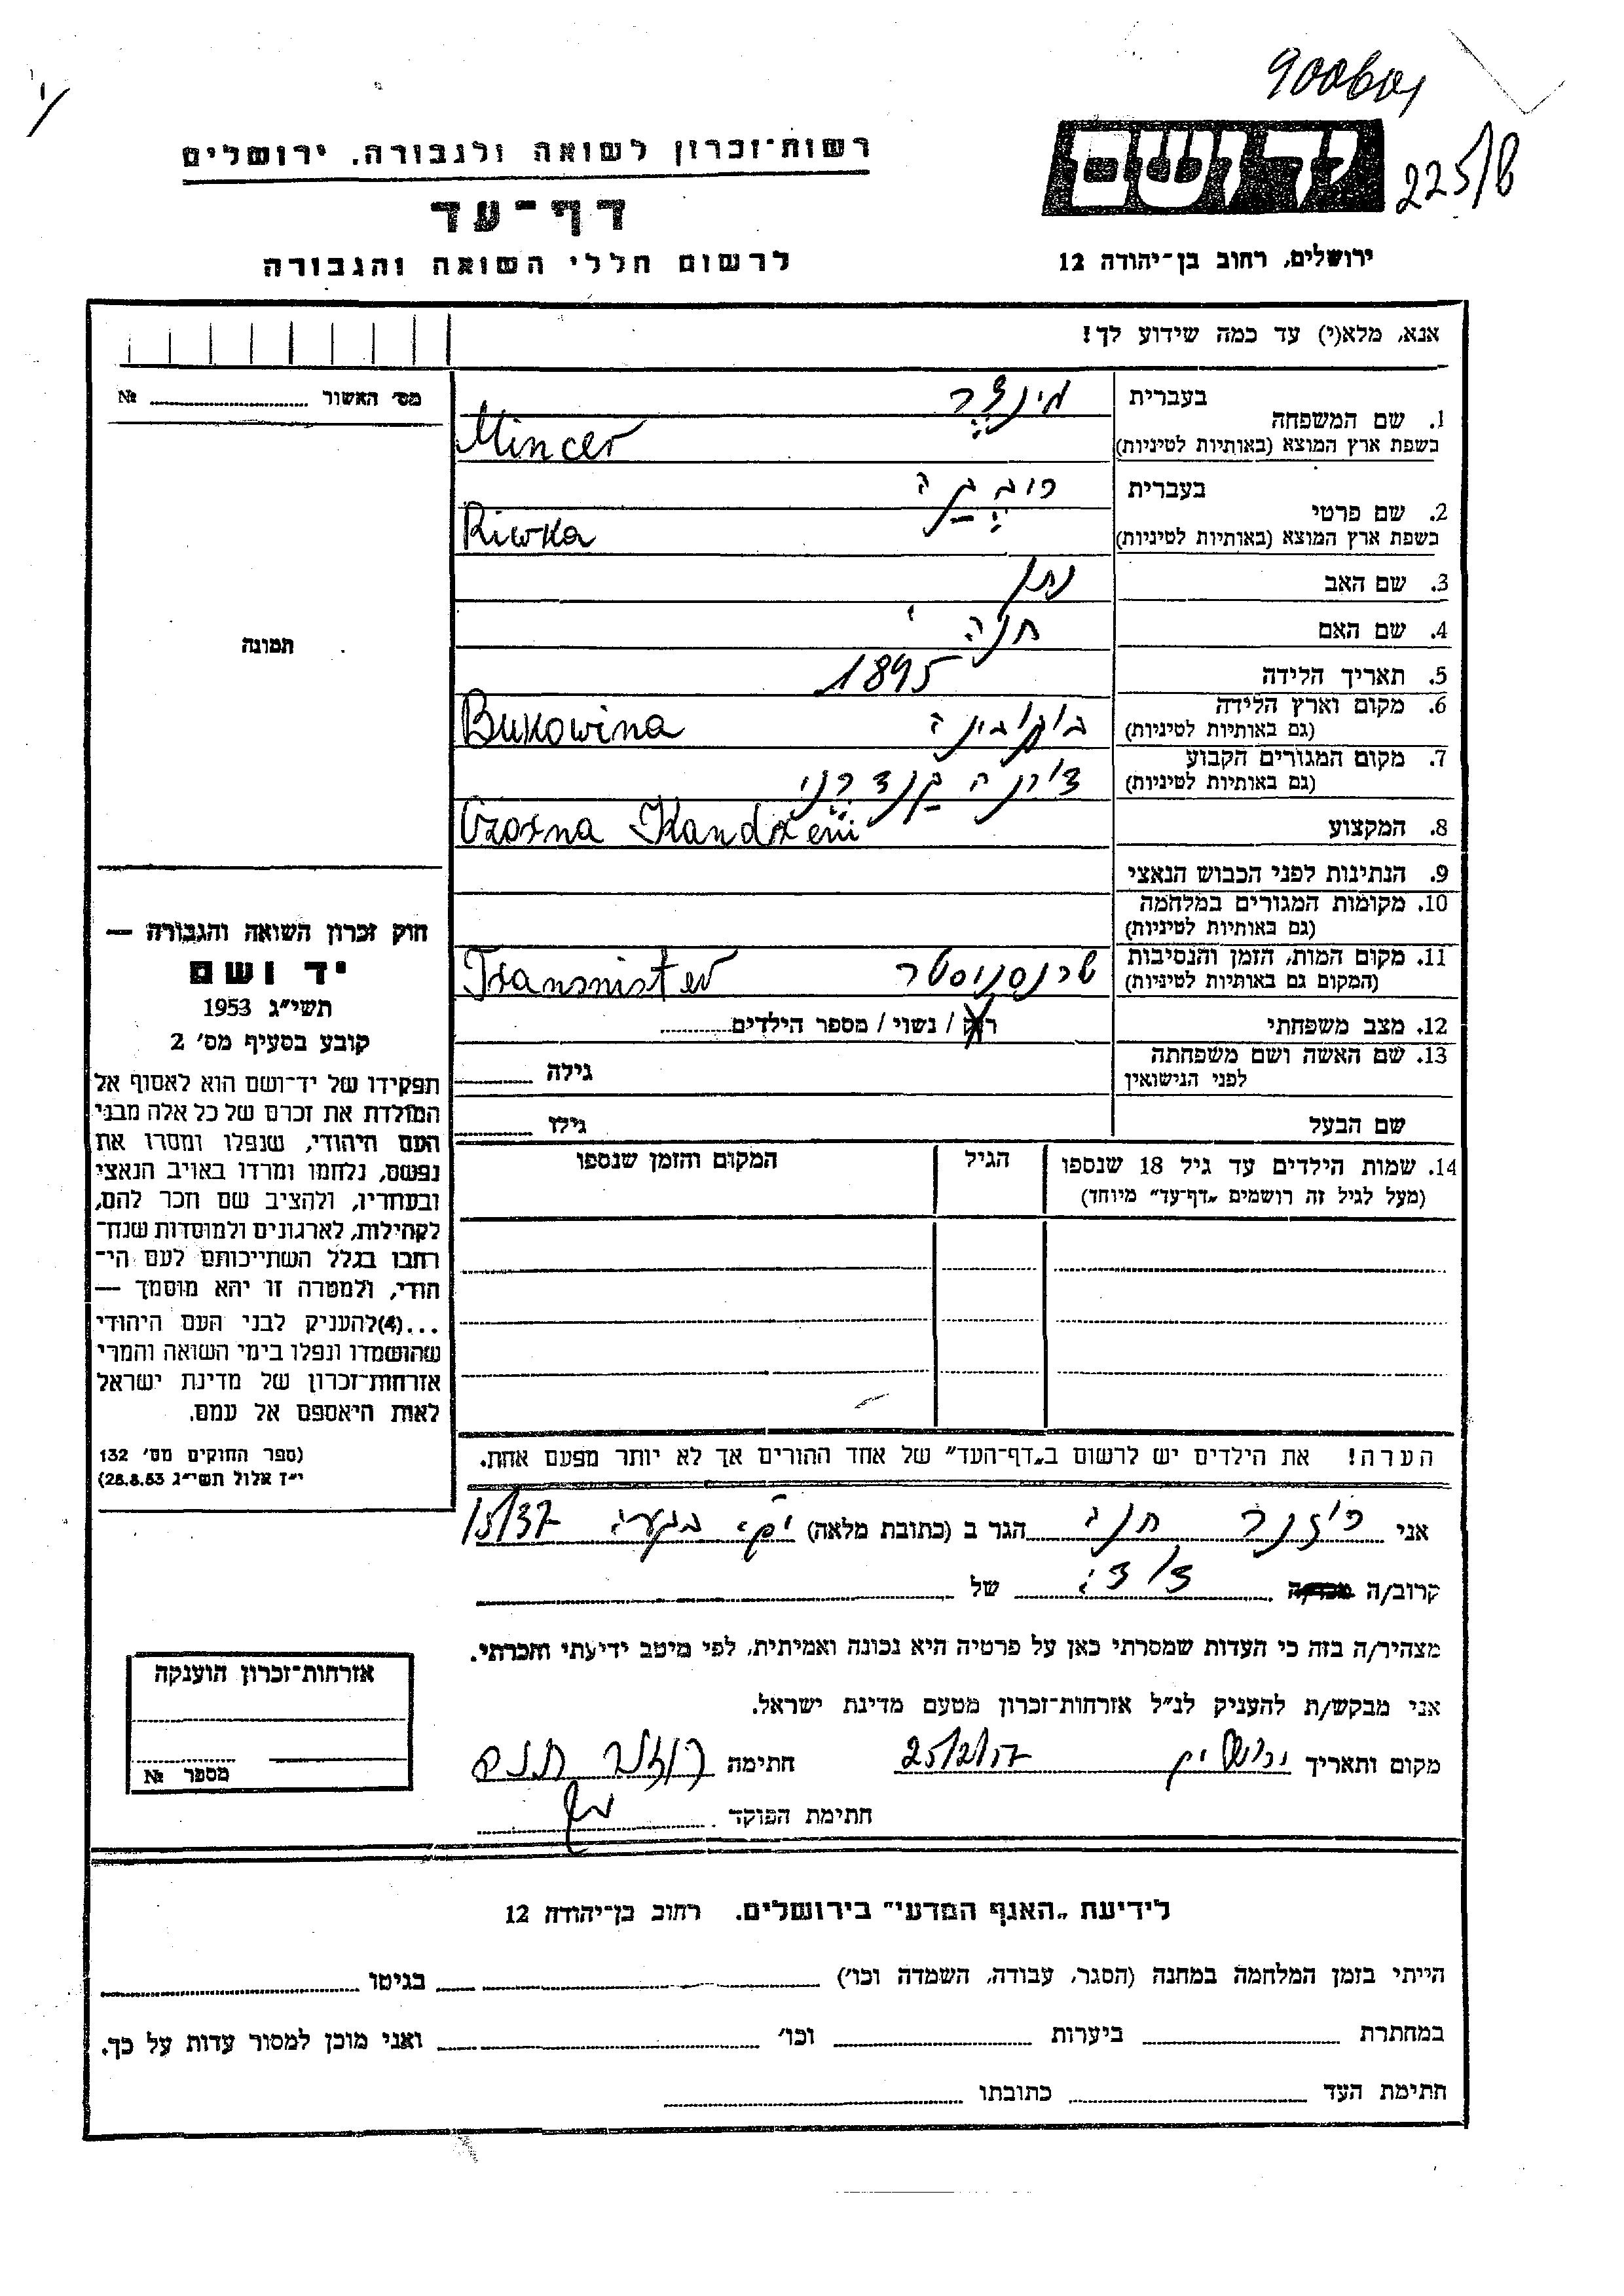 900601
225/8
יד ושם
רשות־זכרון לשואה ולגבורה. ירושלים
דף־עד
לרשום חללי השואה והגבורה
ירושלים, רחוב בן־יהודה 12
אנא, מלא(י) עד כמה שידוע לך!
מס׳ האשור № 
1. שם המשפחה
בעברית
מינצר
בשפת ארץ המוצא (באותיות לטיניות)
Mincer
2. שם פרטי
בעברית
ריבקה
בשפת ארץ המוצא (באותיות לטיניות)
Riwka
3. שם האב
נתן
4. שם האם
חנה
5. תאריך הלידה
1895
6. מקום וארץ הלידה
(גם באותיות לטיניות)
בוקובינה
Bukowina
7. מקום המגורים הקבוע
(גם באותיות לטיניות)
8. המקצוע
Czorna Kandreni
9. הנתינות לפני הכבוש הנאצי
10. מקומות המגורים במלחמה
(גם באותיות לטיניות)
11. מקום המות, הזמן והנסיבות
(המקום גם באותיות לטיניות)
טרנסניסטר
Transnister
12. מצב משפחתי
רוק / נשוי / מספר הילדים
13. שם האשה ושם משפחתה
לפני הנישואין
גילה
שם הבעל
גילו
14. שמות הילדים עד גיל 18 שנספו
(מעל לגיל זה רושמים „דף־עד” מיוחד)
הגיל
המקום והזמן שנספו
תמונה
חוק זכרון השואה והגבורה —
יד ושם
תשי״ג 1953
קובע בסעיף מס׳ 2
תפקידו של יד־ושם הוא לאסוף אל
המולדת את זכרם של כל אלה מבני
העם היהודי, שנפלו ומסרו את
נפשם, נלחמו ומרדו באויב הנאצי
ובעוזריו, ולהציב שם וזכר להם,
לקהילות, לארגונים ולמוסדות שנח־
רבו בגלל השתייכותם לעם הי־
הודי, ולמטרה זו יהא מוסמך —
...(4)להעניק לבני העם היהודי
שהושמדו ונפלו בימי השואה והמרי
אזרחות־זכרון של מדינת ישראל
לאות היאספם אל עמם.
(ספר החוקים מס׳ 132
י״ז אלול תשי״ג 28.8.53)
הערה! את הילדים יש לרשום ב„דף־העד” של אחד ההורים אך לא יותר מפעם אחת.
אני רוזנר חנה הגר ב (כתובת מלאה) 15/37
קרוב/ה מכר/ה של
מצהיר/ה בזה כי העדות שמסרתי כאן על פרטיה היא נכונה ואמיתית, לפי מיטב ידיעתי והכרתי.
אני מבקש/ת להעניק לנ״ל אזרחות־זכרון מטעם מדינת ישראל.
מקום ותאריך ירושלים 25/2/57 חתימה רוזנר חנה
חתימת הפוקד
אזרחות־זכרון הוענקה
מספר №
לידיעת „האגף המדעי” בירושלים. רחוב בן־יהודה 12
הייתי בזמן המלחמה במחנה (הסגר, עבודה, השמדה וכו׳) בגיטו
במחתרת ביערות וכו׳ ואני מוכן למסור עדות על כך.
חתימת העד כתובתו